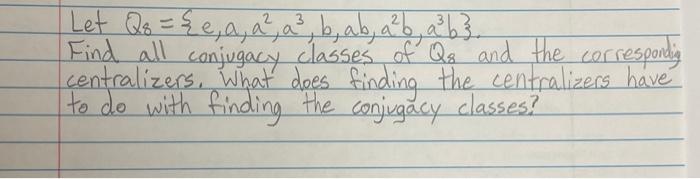 Let Q₈ = {e, a, a², a³, b, ab, a²b, a³b}.
Find all conjugacy classes of Q₈ and the corresponding
centralizers. What does finding the centralizers have
to do with finding the conjugacy classes?